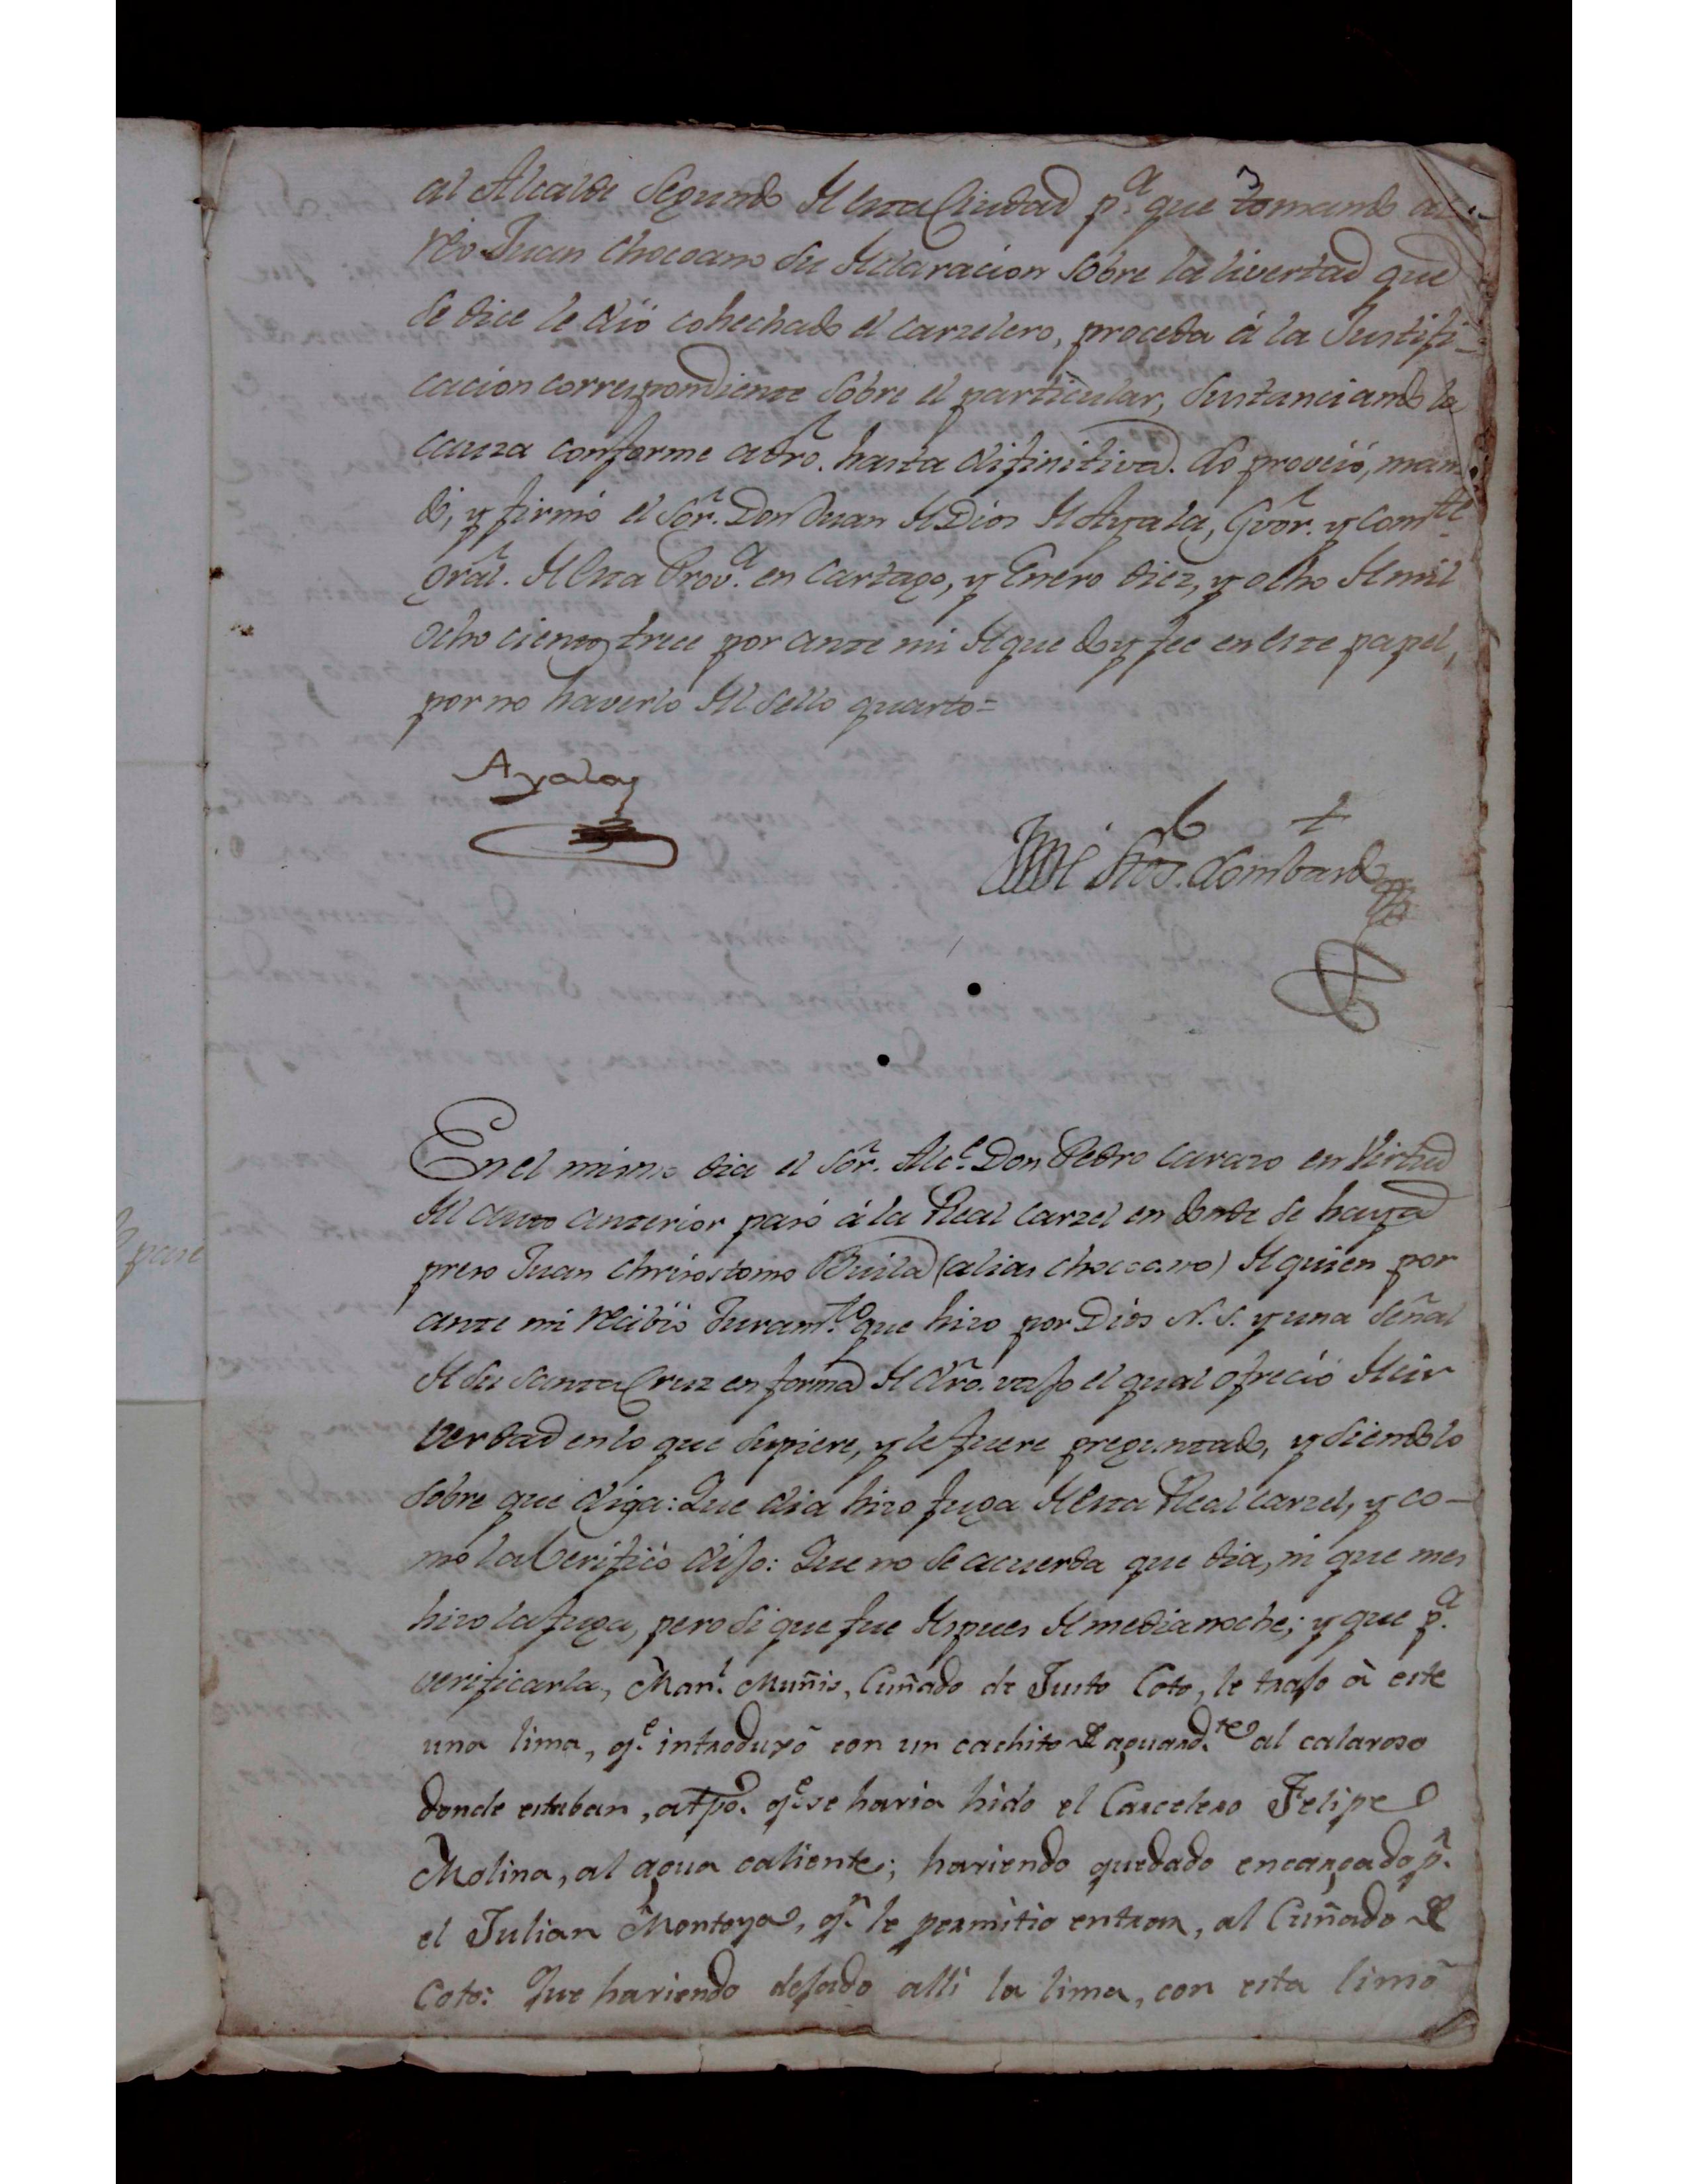 3
al Alcalde Segundo de esta Ciudad p.ª que tomando al
reo Juan Chocoano su declaracion sobre la livertad que
se dice le dió cohechado el carzelero, proceda á la Justifi-
cacion correspondiente sobre el particular, sustanciando la
cauza conforme a dro. hasta difinitiva. Lo proveió, man-
dó, y firmó el Sor. Don Juan de Dios de Ayala, Gvor. y Com.te
gral. de esta Prov.ª en Cartago, y Enero diez, y ocho de mil
ocho cientos trece por ante mi de que doy fee en este papel,
por no haverlo del sello quarto=
Ayala
Lombardo
En el mismo dia el Sor. Alc.e Don Pedro Carazo en virtud
del auto anterior pasó á la Real Carzel en donde se haya
preso Juan Chrisostomo Buila (alias chocoano) de quien por
ante mi recibió Juram.to que hizo por Dios N. S. y una señal
de su Santa Cruz en forma de dro. vajo el qual ofreció decir
verdad en lo que supiere, y le fuere preguntado, y siendolo
sobre que diga: Que dia hizo fuga de esta Real Carzel, y co-
mo la verificó dijo: Que no se acuerda que dia, ni que mes
hizo la fuga, pero si que fue despues de media noche; y que p.ª
verificarla, Man.l Muñis, Cuñado de Justo Coto, le trajo à este
una lima, q.e introduxo con un cachito de aguard.te al calavoso
donde estaban, a tpo. q.e se havia hido el Carcelero Felipe
Molina, al agua caliente; haviendo quedado encargado p.r
el Julian Montoya, q.n le permitio entrar, al Cuñado de
Coto: Que haviendo dejado alli la lima, con esta limó
pase